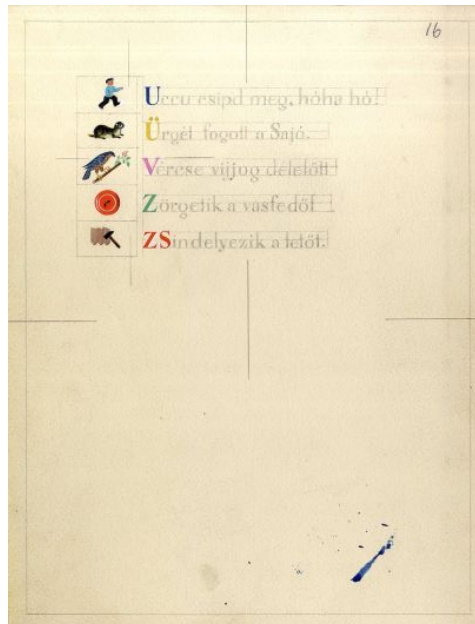 16
Uccu csípd meg, hóha hó!
Ürgét fogott a Sajó.
Vércse vijjog délelőtt
Zörgetik a vasfedőt
ZSindelyezik a tetőt.